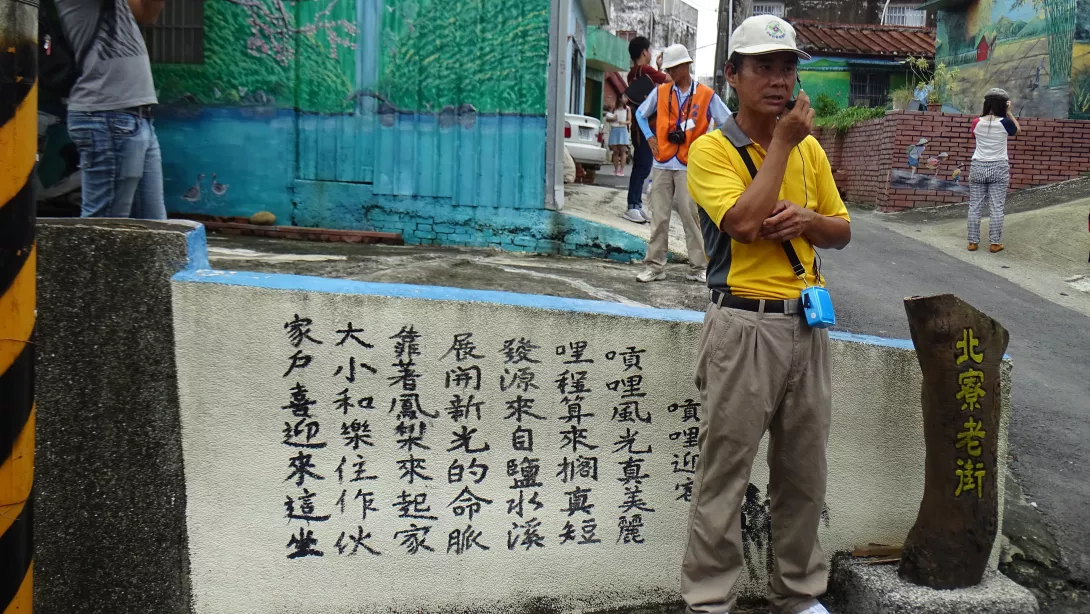 嗊哩迎客
嗊哩風光真美麗
哩程算來擱真短
發源來自鹽水溪
展開新光的命脈
靠著鳳梨來起家
大小和樂住作伙
家戶喜迎來這坐
北寮老街